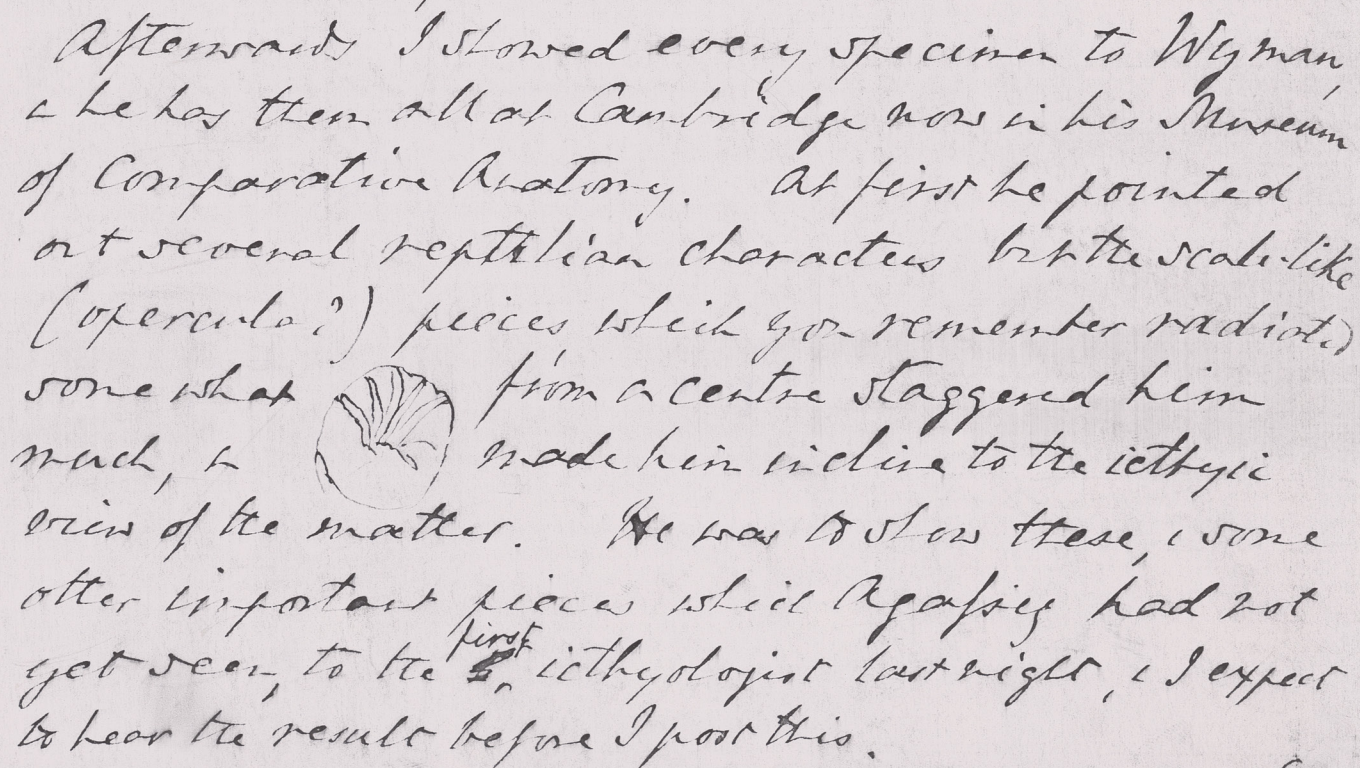 Afterwards I showed every specimen to Wyman,
& he has them all at Cambridge now in his Museum
of Comparative Anatomy. At first he pointed
out several reptilian characters but the scale-like
(opercula?) pieces which you remember radiated
somewhat from a centre staggered him
much, & made him incline to the icthyic
view of the matter. He was to show these, & some
other important pieces which Agassiz had not
yet seen, to the first icthyologist last night, & I expect
to hear the result before I post this.